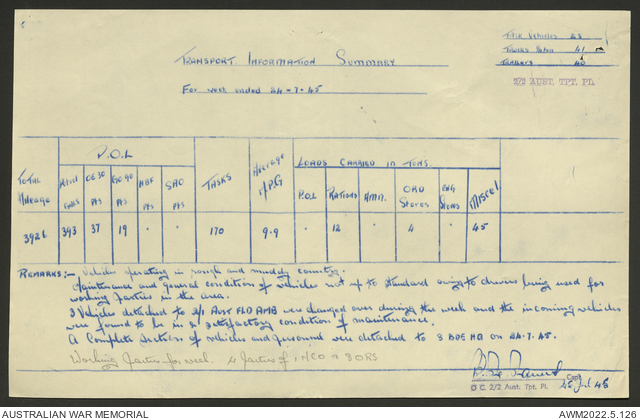 Task Vehicles 43
Trucks 41
Trailers 40
2/2 AUST. TPT. PL.
TRANSPORT INFORMATION SUMMARY
For week ended 24-7-45
P.O.L
LOADS CARRIED IN TONS.
TOTAL Mileage
GALLS
OE30 PTS
GO90 PTS
HBF PTS
SAO PTS
TASKS
Average M.P.G
P.O.L
RATIONS
AMN.
ORD Stores
ENG Stores
MISCEL
3926 393 37 19 . . 170 9-9 . 12 . 4 . 45
REMARKS:- Vehicles operating in rough and muddy country.
Maintenance and general condition of vehicles not up to standard owing to drivers being used for
working parties in the area.
3 Vehicles detached to 2/1 Aust FLD AMB were changed over during the week and the incoming vehicles
were found to be in a satisfactory condition of maintenance.
A Complete Section of vehicles and personnel were detached to 8 BDE HQ on 24-7-45.
Working Parties for week. 4 Parties of 1 NCO + 8 ORS
Capt
O C. 2/2 Aust. Tpt. Pl.
25 Jul 45
AUSTRALIAN WAR MEMORIAL
AWM2022.5.126